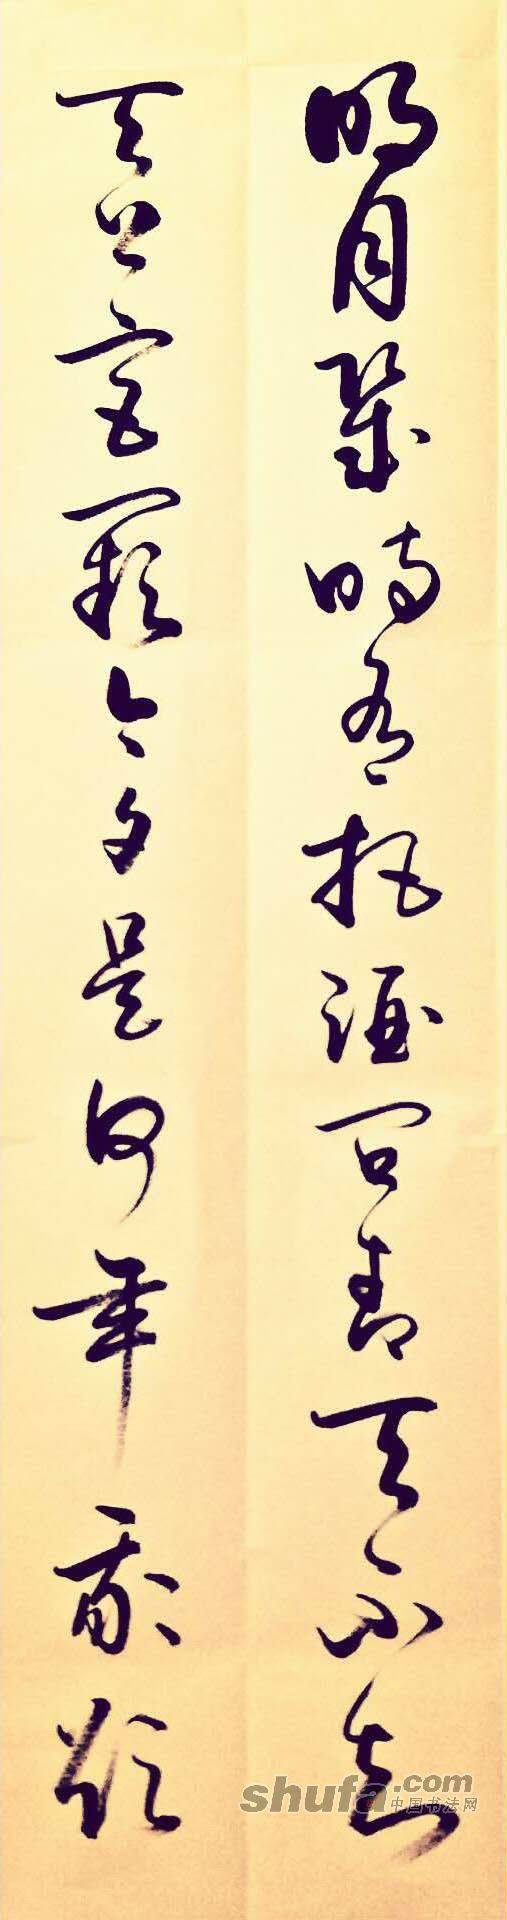 明月幾時有把酒問青天不知
天上宮闕今夕是何年我欲
shufa.com
中国书法网